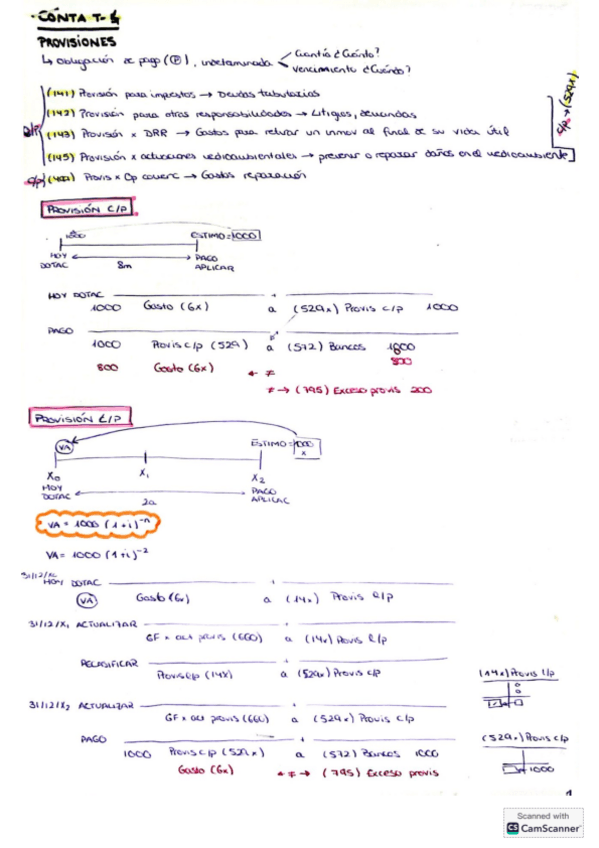 CONTA T-4
PROVISIONES
↳ Obligación de pago (P), indeterminada
Cuantía ¿Cuánto?
Vencimiento ¿Cuándo?
(141) Provisión para impuestos → Deudas tributarias
(142) Provisión para otras responsabilidades → Litigios, demandas
(143) Provisión x DRR → Gastos para retirar un inmov al final de su vida útil
(145) Provisión x actuaciones medioambientales → prevenir o reparar daños en el medioambiente
c/p → (529x)
c/p (499) Provis x Op comerc → Gastos reparación
PROVISIÓN C/P
1000 ESTIMO = 1000
HOY PAGO
DOTAC 8m APLICAR
HOY DOTAC
1000 Gasto (6x) a (529x) Provis c/p 1000
PAGO
1000 Provis c/p (529) a (572) Bancos 1000
800
800 Gasto (6x) ← ≠
≠ → (795) Exceso provis 200
PROVISIÓN L/P
VA ESTIMO = 1000
X0 X1 X2
HOY PAGO
DOTAC 2a APLICAC
VA = 1000 (1+i)⁻ⁿ
VA = 1000 (1+i)⁻²
31/12/X0 HOY DOTAC
VA Gasto (6x) a (14x) Provis l/p
31/12/X1 ACTUALIZAR
GF x act provis (660) a (14x) Provis l/p
RECLASIFICAR
Provis l/p (14x) a (529x) Provis c/p
(14x) Provis l/p
31/12/X2 ACTUALIZAR
GF x act provis (660) a (529x) Provis c/p
PAGO
1000 Provis c/p (529x) a (572) Bancos 1000
Gasto (6x) ← ≠ → (795) Exceso provis
(529x) Provis c/p
1000
1
Scanned with
CS CamScanner